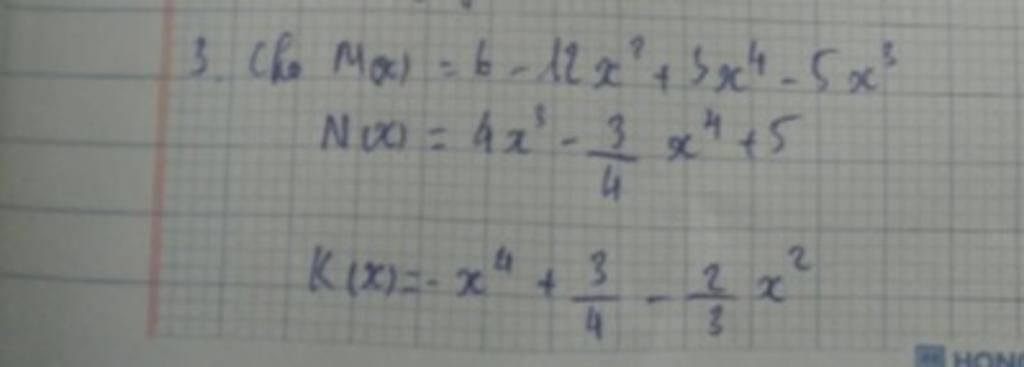 3. Cho M(x) = 6 - 12x² + 3x⁴ - 5x³
N(x) = 4x³ - 3/4 x⁴ + 5
K(x) = - x⁴ + 3/4 - 2/3 x²
HONG